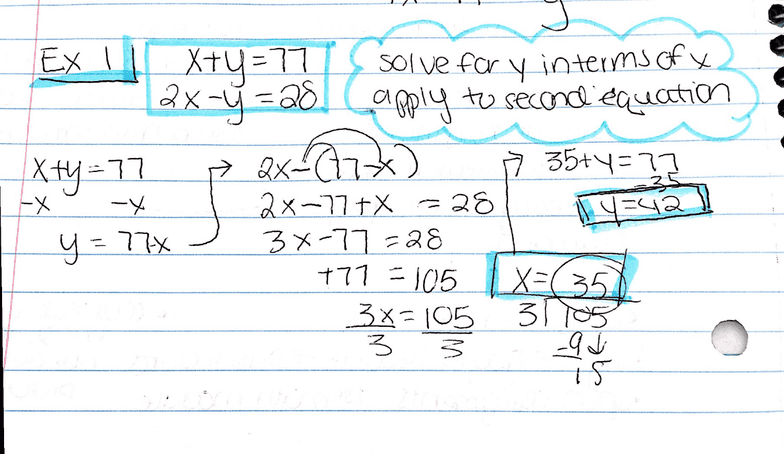 Ex 1
x+y=77
2x-y=28
solve for y in terms of x
apply to second equation
x+y=77
-x -x
y=77-x
2x-(77-x)
2x-77+x = 28
3x-77=28
+77 = 105
3x = 105
3 3
35+y=77
-35
y=42
x= 35
3 105
-9↓
15